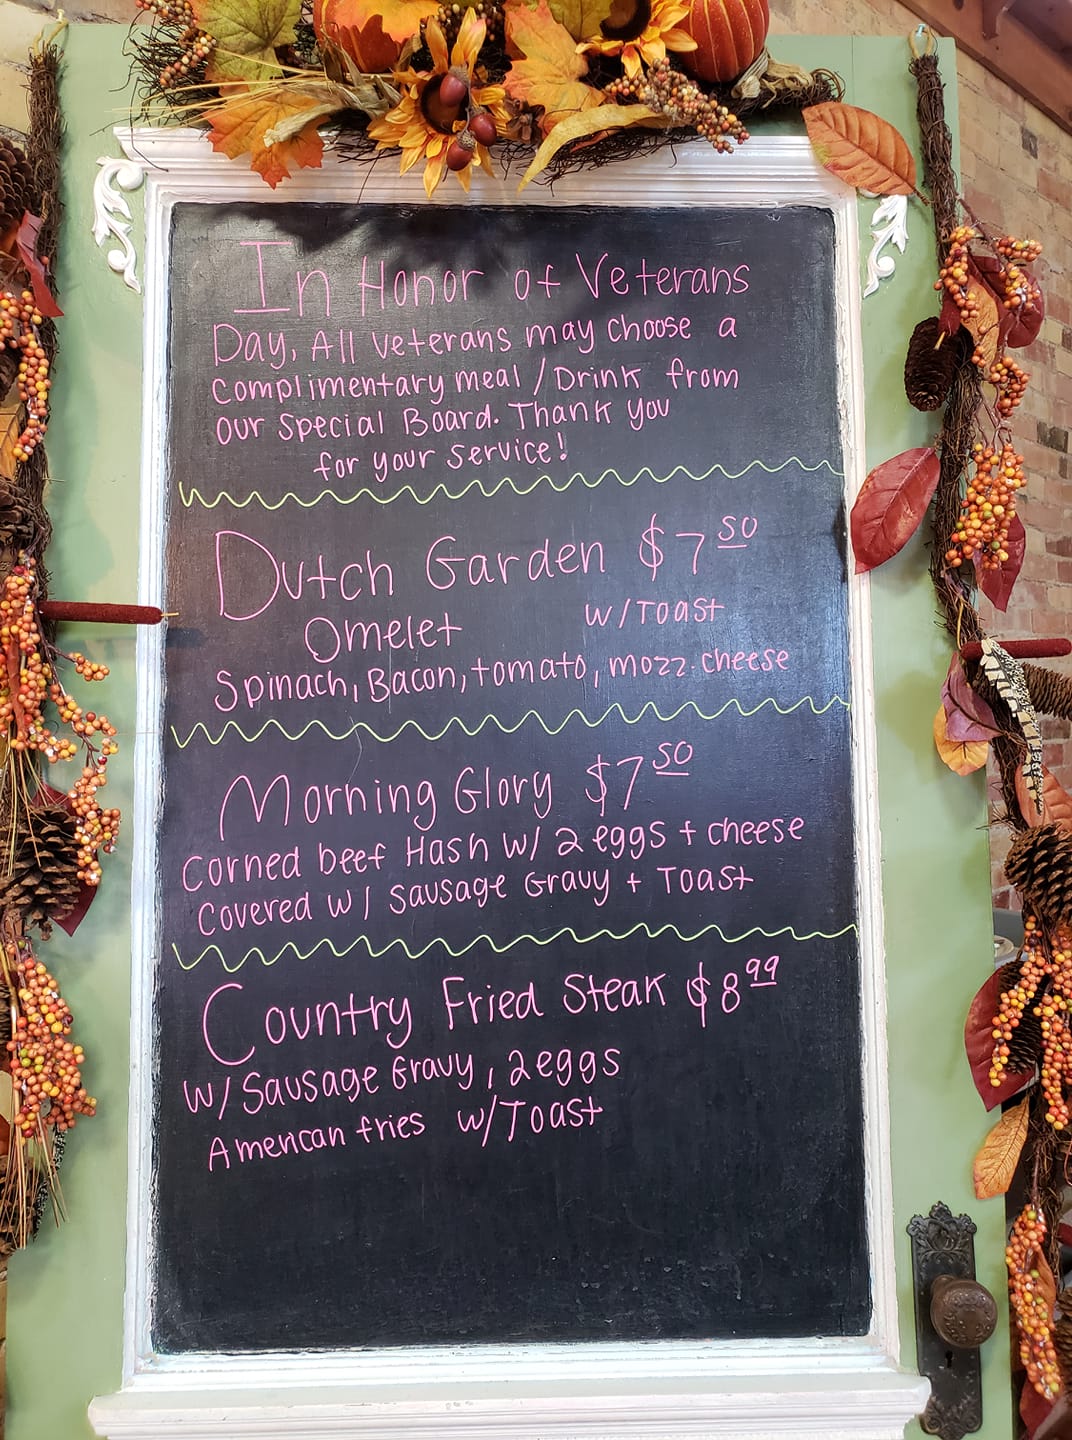 In Honor of Veterans
Day, All Veterans may choose a
complimentary meal / Drink from
our Special Board. Thank you
for your service!
Dutch Garden $7 50
Omelet w/Toast
Spinach, Bacon, tomato, mozz. cheese
Morning Glory $7 50
Corned beef Hash w/ 2 eggs + cheese
Covered w/ Sausage Gravy + Toast
Country Fried Steak $8 99
w/ Sausage Gravy, 2 eggs
American fries w/Toast